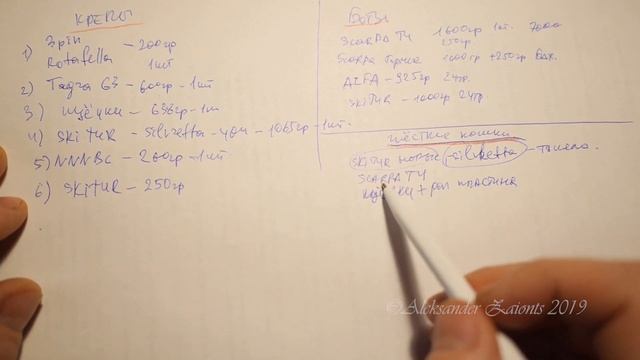 КРЕПЫ
1) 3pin - 200гр
Rotafella 1шт
2) Tagra G3 - 600гр - 1шт
3) - 638гр - 1шт
4) SkiTUR - Silvretta - 404 - 1065гр - 1шт.
5) NNNBC - 260гр - 1шт
6) SkiTUR - 250гр
Боты
SCARPA T4 1600гр 1шт. 7000
250гр.
SCARPA 1600гр +250гр бах.
ALFA - 925гр 24тр.
SKiTUR - 1000гр 24тр.
жёсткие кошки
SKiTUR новые silvretta - тяжело.
SCARPA T4
+ рол пластина
©Aleksander Zaionts 2019